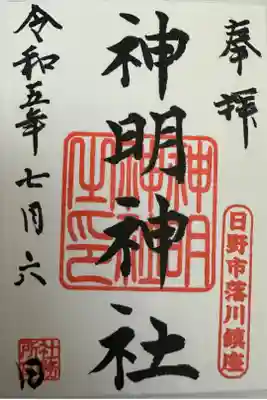 奉拝
日野市落川鎮座
神明神社
神明神社之印
令和五年七月六日
社務所